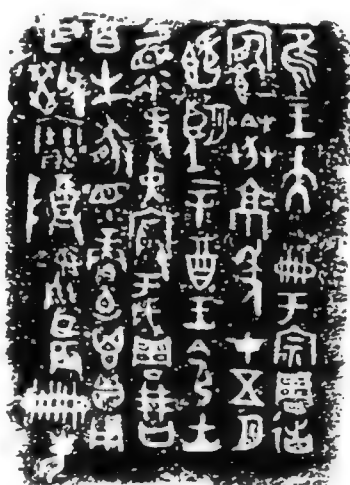 隹王大龠于宗周
䓊京年才五月
既望辛酉王令士
上眔史寅殷于成周
百生豚眔賞卣鬯貝
用乍父癸寶尊彝臣辰冊